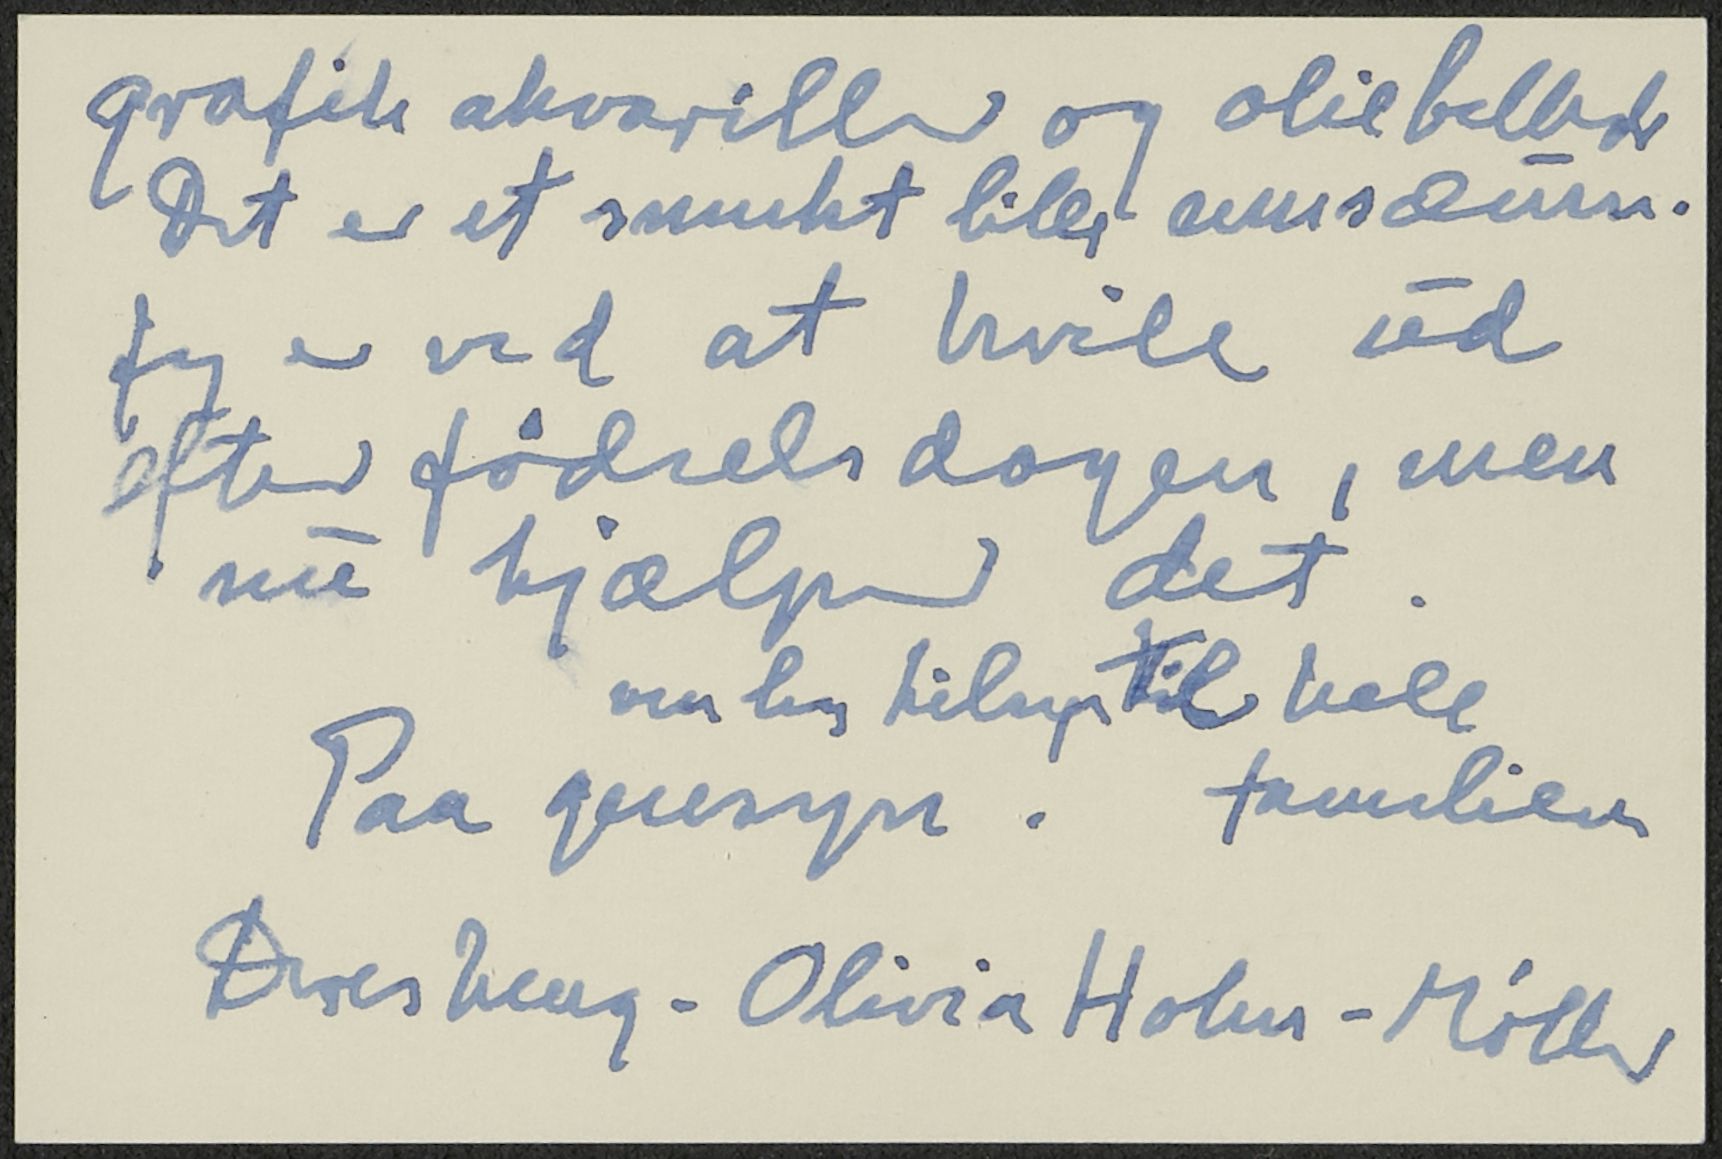 grafik akvareller og oliebilleder
Det er et smukt lille museum.
Jeg er ved at hvile ud
efter fødselsdagen, men
nu hjælper det.
venlig hilsen til hele
Paa gensyn. familien
Deres heng. Olivia Holm-Møller